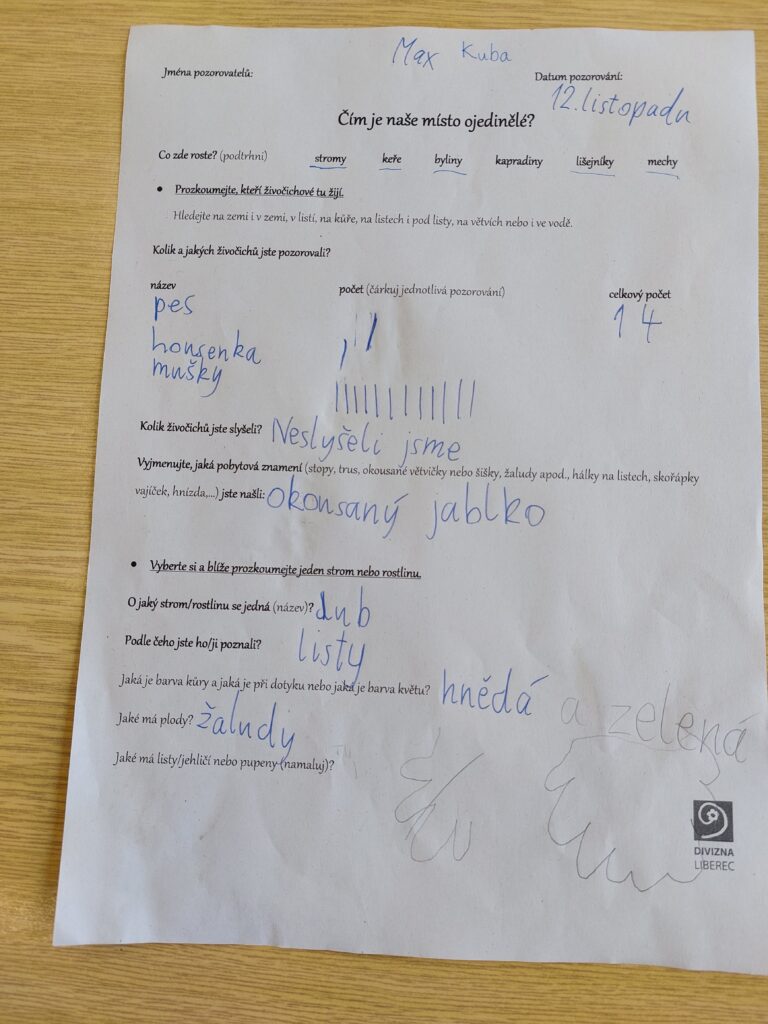 Max Kuba
Jména pozorovatelů: Datum pozorování:
12. listopadu
Čím je naše místo ojedinělé?
Co zde roste? (podtrhni) stromy keře byliny kapradiny lišejníky mechy
• Prozkoumejte, kteří živočichové tu žijí.
Hledejte na zemi i v zemi, v listí, na kůře, na listech i pod listy, na větvích nebo i ve vodě.
Kolik a jakých živočichů jste pozorovali?
název počet (čárkuj jednotlivá pozorování) celkový počet
pes 14
housenka
mušky
Kolik živočichů jste slyšeli? Neslyšeli jsme
Vyjmenujte, jaká pobytová znamení (stopy, trus, okousané větvičky nebo šišky, žaludy apod., hálky na listech, skořápky
vajíček, hnízda,...) jste našli: okousaný jablko
• Vyberte si a blíže prozkoumejte jeden strom nebo rostlinu.
O jaký strom/rostlinu se jedná (název)? dub
Podle čeho jste ho/ji poznali? listy
Jaká je barva kůry a jaká je při dotyku nebo jaká je barva květu? hnědá a zelená
Jaké má plody? žaludy
Jaké má listy/jehličí nebo pupeny (namaluj)?
DIVIZNA
LIBEREC